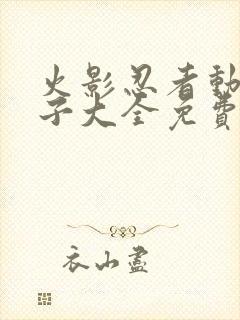 火影忍者動
子大全免費
衣山盡